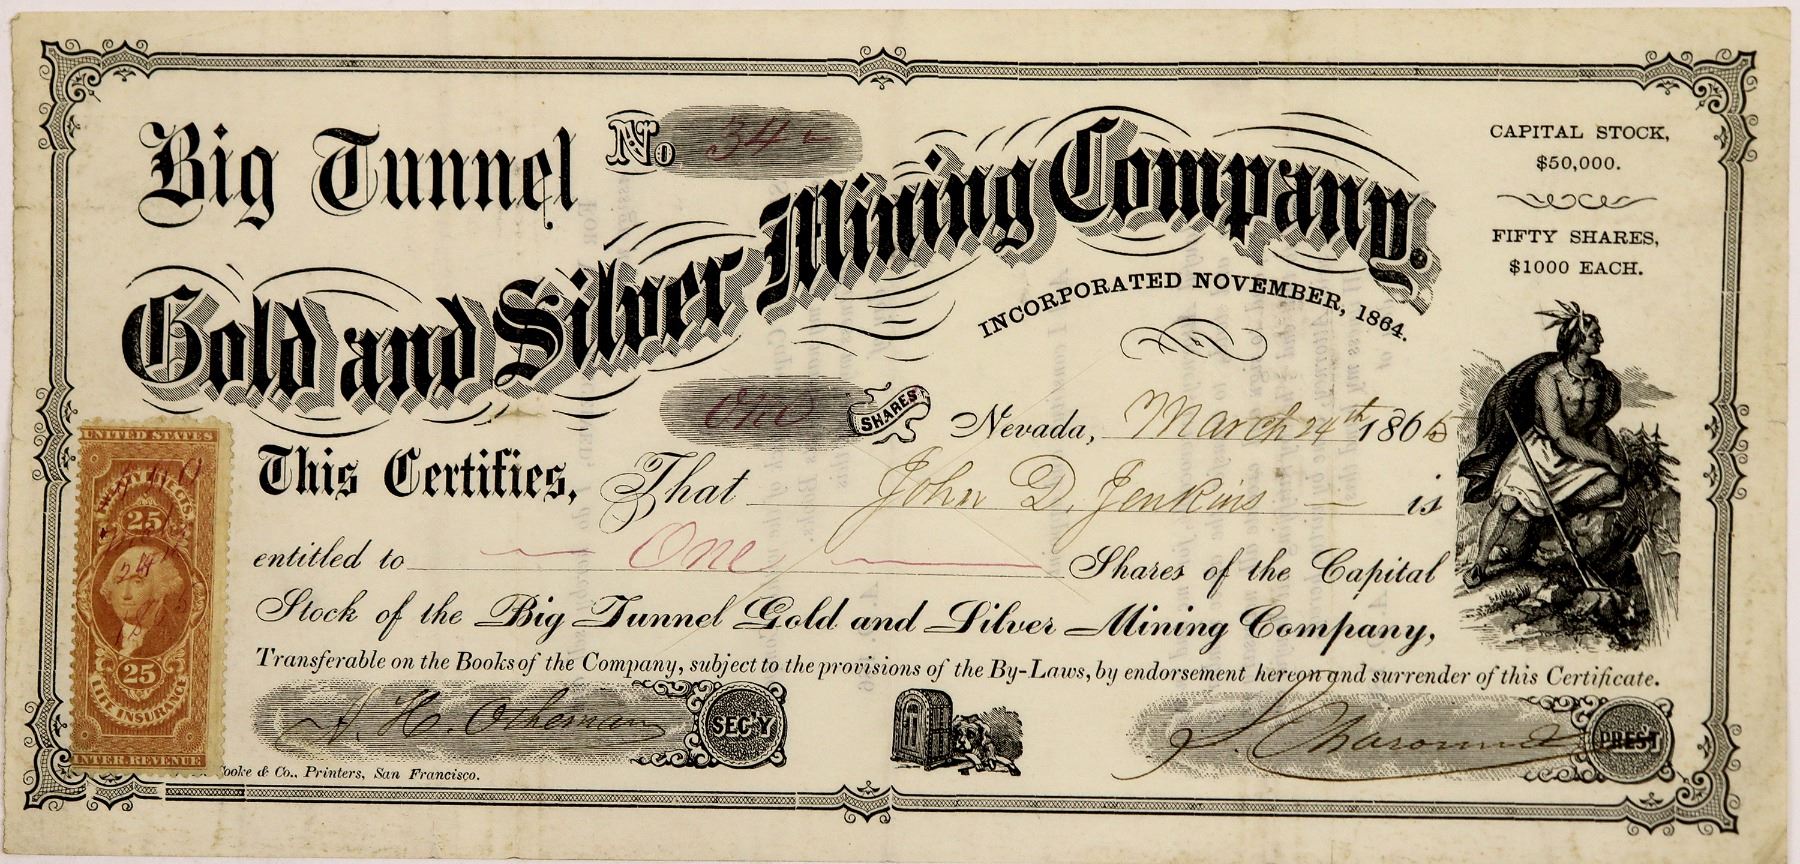 Big Tunnel No. 34
Gold and Silver Mining Company.
INCORPORATED NOVEMBER, 1864.
CAPITAL STOCK,
$50,000.
FIFTY SHARES,
$1000 EACH.
One SHARES Nevada, March 24th 1865
This Certifies, That John D. Jenkins is
entitled to One Shares of the Capital
Stock of the Big Tunnel Gold and Silver Mining Company,
Transferable on the Books of the Company, subject to the provisions of the By-Laws, by endorsement hereon and surrender of this Certificate.
SEC'Y
PREST
ooke & Co., Printers, San Francisco.
UNITED STATES
25
24
25
LIFE INSURANCE
INTER. REVENUE